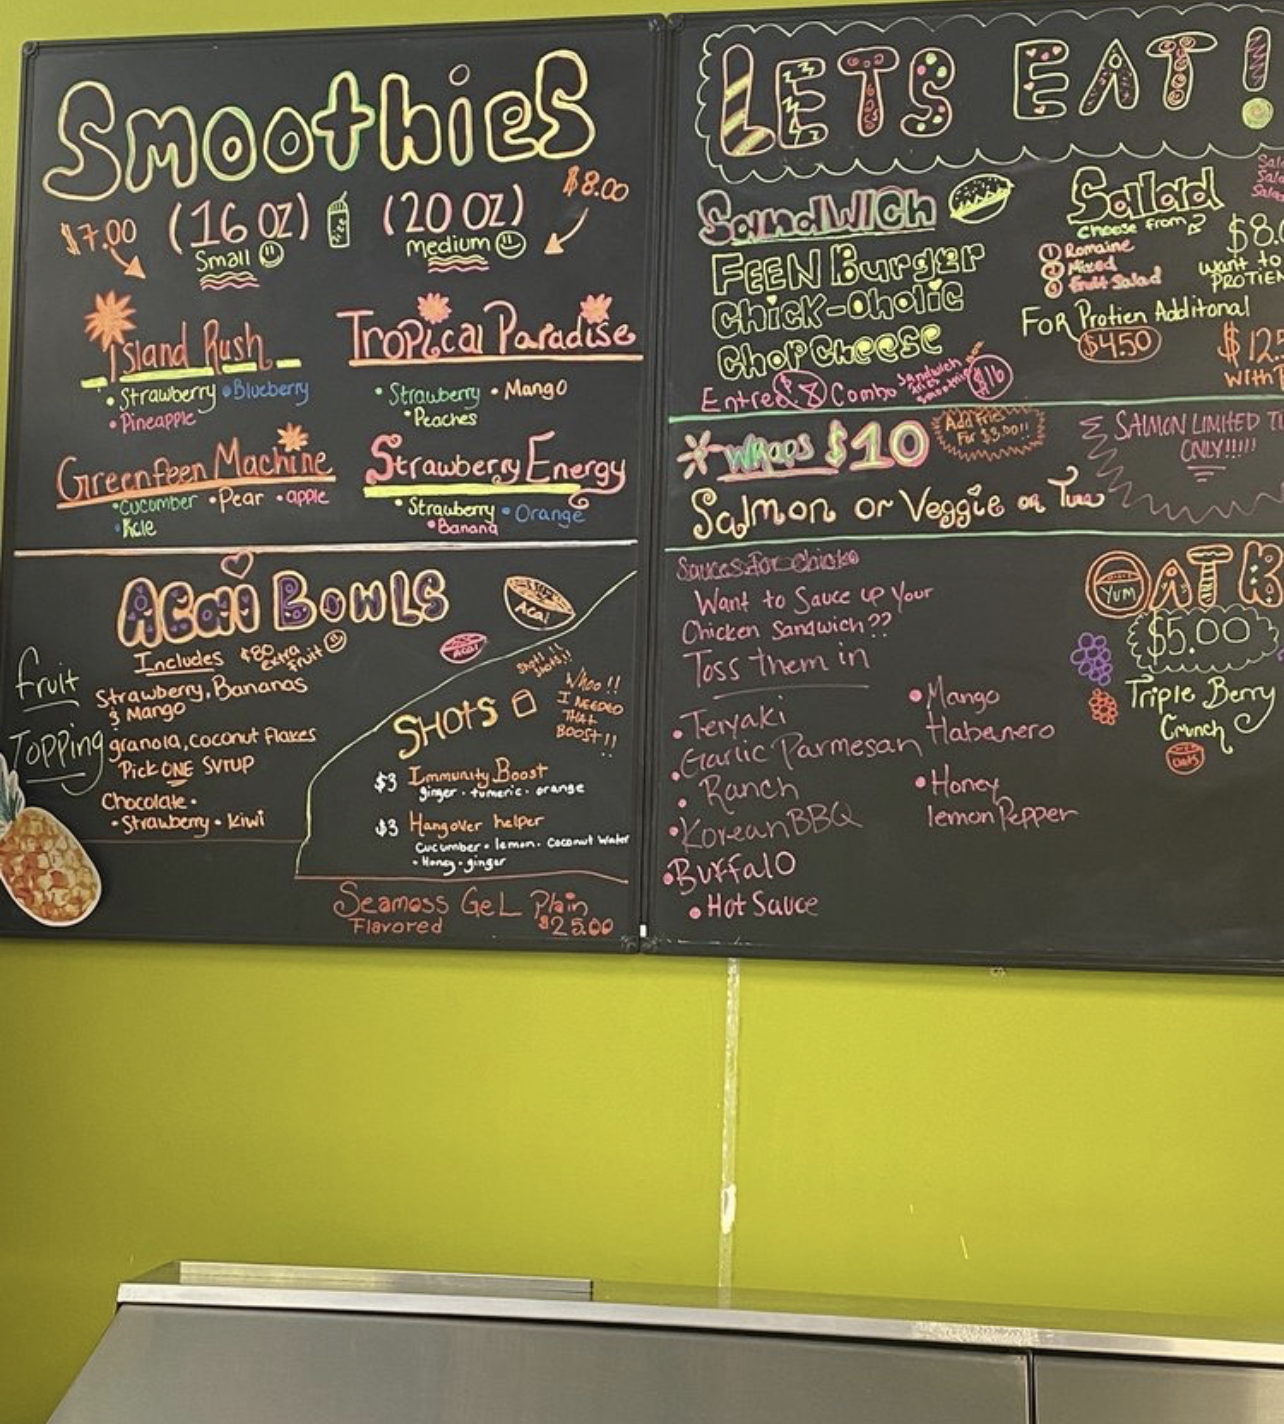 Smoothies
$7.00 (16 oz) (20 oz) $8.00
Small medium
Island Rush
• Strawberry • Blueberry
• Pineapple
Tropical Paradise
• Strawberry • Mango
• Peaches
Greenfeen Machine
• Cucumber • Pear • apple
• Kale
Strawberry Energy
• Strawberry • Orange
• Banana
Acai Bowls
Acai
Acai
Includes
extra
fruit
fruit
Strawberry, Bananas
& Mango
Topping
granola, Coconut Flakes
Pick ONE Syrup
Chocolate •
• Strawberry • Kiwi
SHOTS
Shots!!
Shots!!
Whoo!!
I NEEDED
THAT
BOOST!!
$3 Immunity Boost
ginger • tumeric • orange
$3 Hangover helper
Cucumber • lemon • Coconut Water
• Honey • ginger
Seamoss GeL Plain
Flavored $25.00
LETS EAT!
SandWich
FEEN Burger
Chick-Oholic
Chop Cheese
Entree $8 Combo Sandwich
fries
$16
Salad
choose from
① Romaine
② Mixed
③ fruit Salad
$8.0
want to
PROTIE
FOR Protien Additonal
$4.50
$12.5
WITH
Wraps $10
Add Fries
For $3.00!!
SALMON LIMITED TI
ONLY!!!!!
Salmon or Veggie or Tuna
Sauces for chicken
Want to Sauce up your
Chicken Sandwich??
Toss them in
• Teryaki
• Garlic Parmesan
• Ranch
• Korean BBQ
• Buffalo
• Hot Sauce
• Mango
Habanero
• Honey
lemon Pepper
OATB
YUM
$5.00
Triple Berry
Crunch
oats